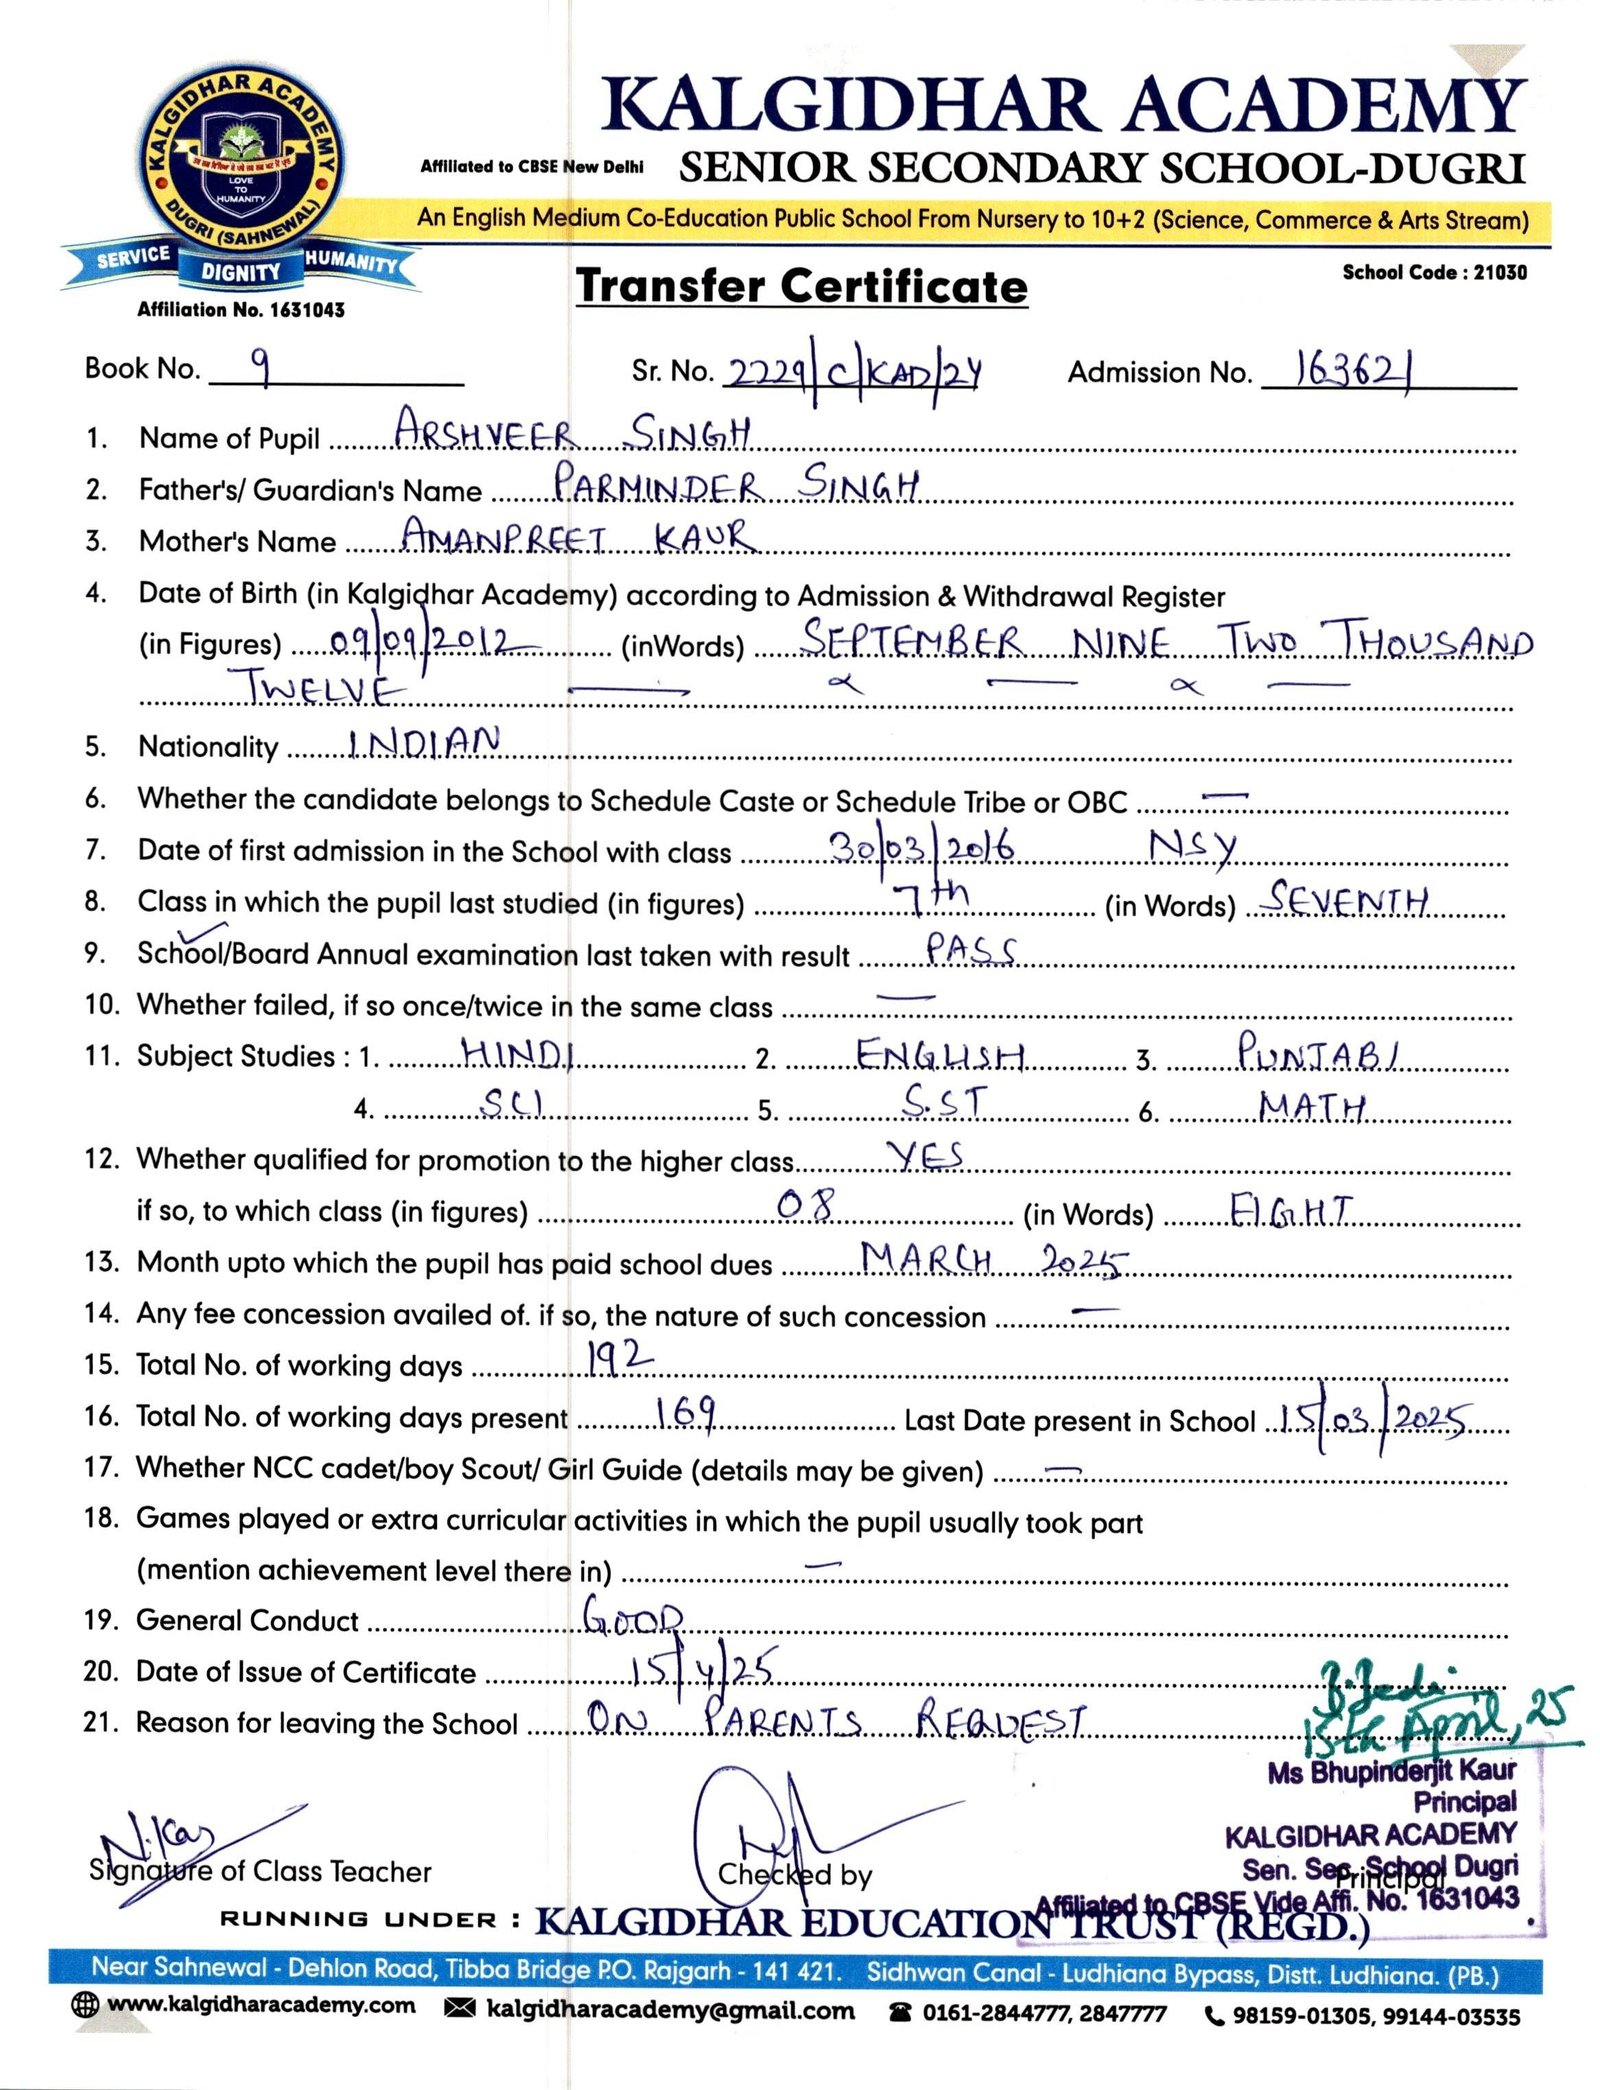 KALGIDHAR ACADEMY
DUGRI (SAHNEWAL)
LOVE
TO
HUMANITY
SERVICE DIGNITY HUMANITY
Affiliation No. 1631043
KALGIDHAR ACADEMY
Affiliated to CBSE New Delhi SENIOR SECONDARY SCHOOL-DUGRI
An English Medium Co-Education Public School From Nursery to 10+2 (Science, Commerce & Arts Stream)
Transfer Certificate School Code : 21030
Book No. 9 Sr. No. 2229/C/KAD/24 Admission No. 16362/
1. Name of Pupil ARSHVEER SINGH
2. Father's/ Guardian's Name PARMINDER SINGH
3. Mother's Name AMANPREET KAUR
4. Date of Birth (in Kalgidhar Academy) according to Admission & Withdrawal Register
(in Figures) 09/09/2012 (inWords) SEPTEMBER NINE TWO THOUSAND
TWELVE
5. Nationality INDIAN
6. Whether the candidate belongs to Schedule Caste or Schedule Tribe or OBC —
7. Date of first admission in the School with class 30/03/2016 NSY
8. Class in which the pupil last studied (in figures) 7th (in Words) SEVENTH
9. School/Board Annual examination last taken with result PASS
10. Whether failed, if so once/twice in the same class —
11. Subject Studies : 1. HINDI 2. ENGLISH 3. PUNJABI
4. SCI 5. S.ST 6. MATH
12. Whether qualified for promotion to the higher class YES
if so, to which class (in figures) 08 (in Words) EIGHT
13. Month upto which the pupil has paid school dues MARCH 2025
14. Any fee concession availed of. if so, the nature of such concession —
15. Total No. of working days 192
16. Total No. of working days present 169 Last Date present in School 15/03/2025
17. Whether NCC cadet/boy Scout/ Girl Guide (details may be given) —
18. Games played or extra curricular activities in which the pupil usually took part
(mention achievement level there in) —
19. General Conduct GOOD
20. Date of Issue of Certificate 15/4/25
21. Reason for leaving the School ON PARENTS REQUEST
15th April, 25
Ms Bhupinderjit Kaur
Principal
KALGIDHAR ACADEMY
Sen. Sec. School Dugri
Affiliated to CBSE Vide Affi. No. 1631043
Signature of Class Teacher Checked by Principal
RUNNING UNDER : KALGIDHAR EDUCATION TRUST (REGD.)
Near Sahnewal - Dehlon Road, Tibba Bridge P.O. Rajgarh - 141 421. Sidhwan Canal - Ludhiana Bypass, Distt. Ludhiana. (PB.)
www.kalgidharacademy.com kalgidharacademy@gmail.com 0161-2844777, 2847777 98159-01305, 99144-03535